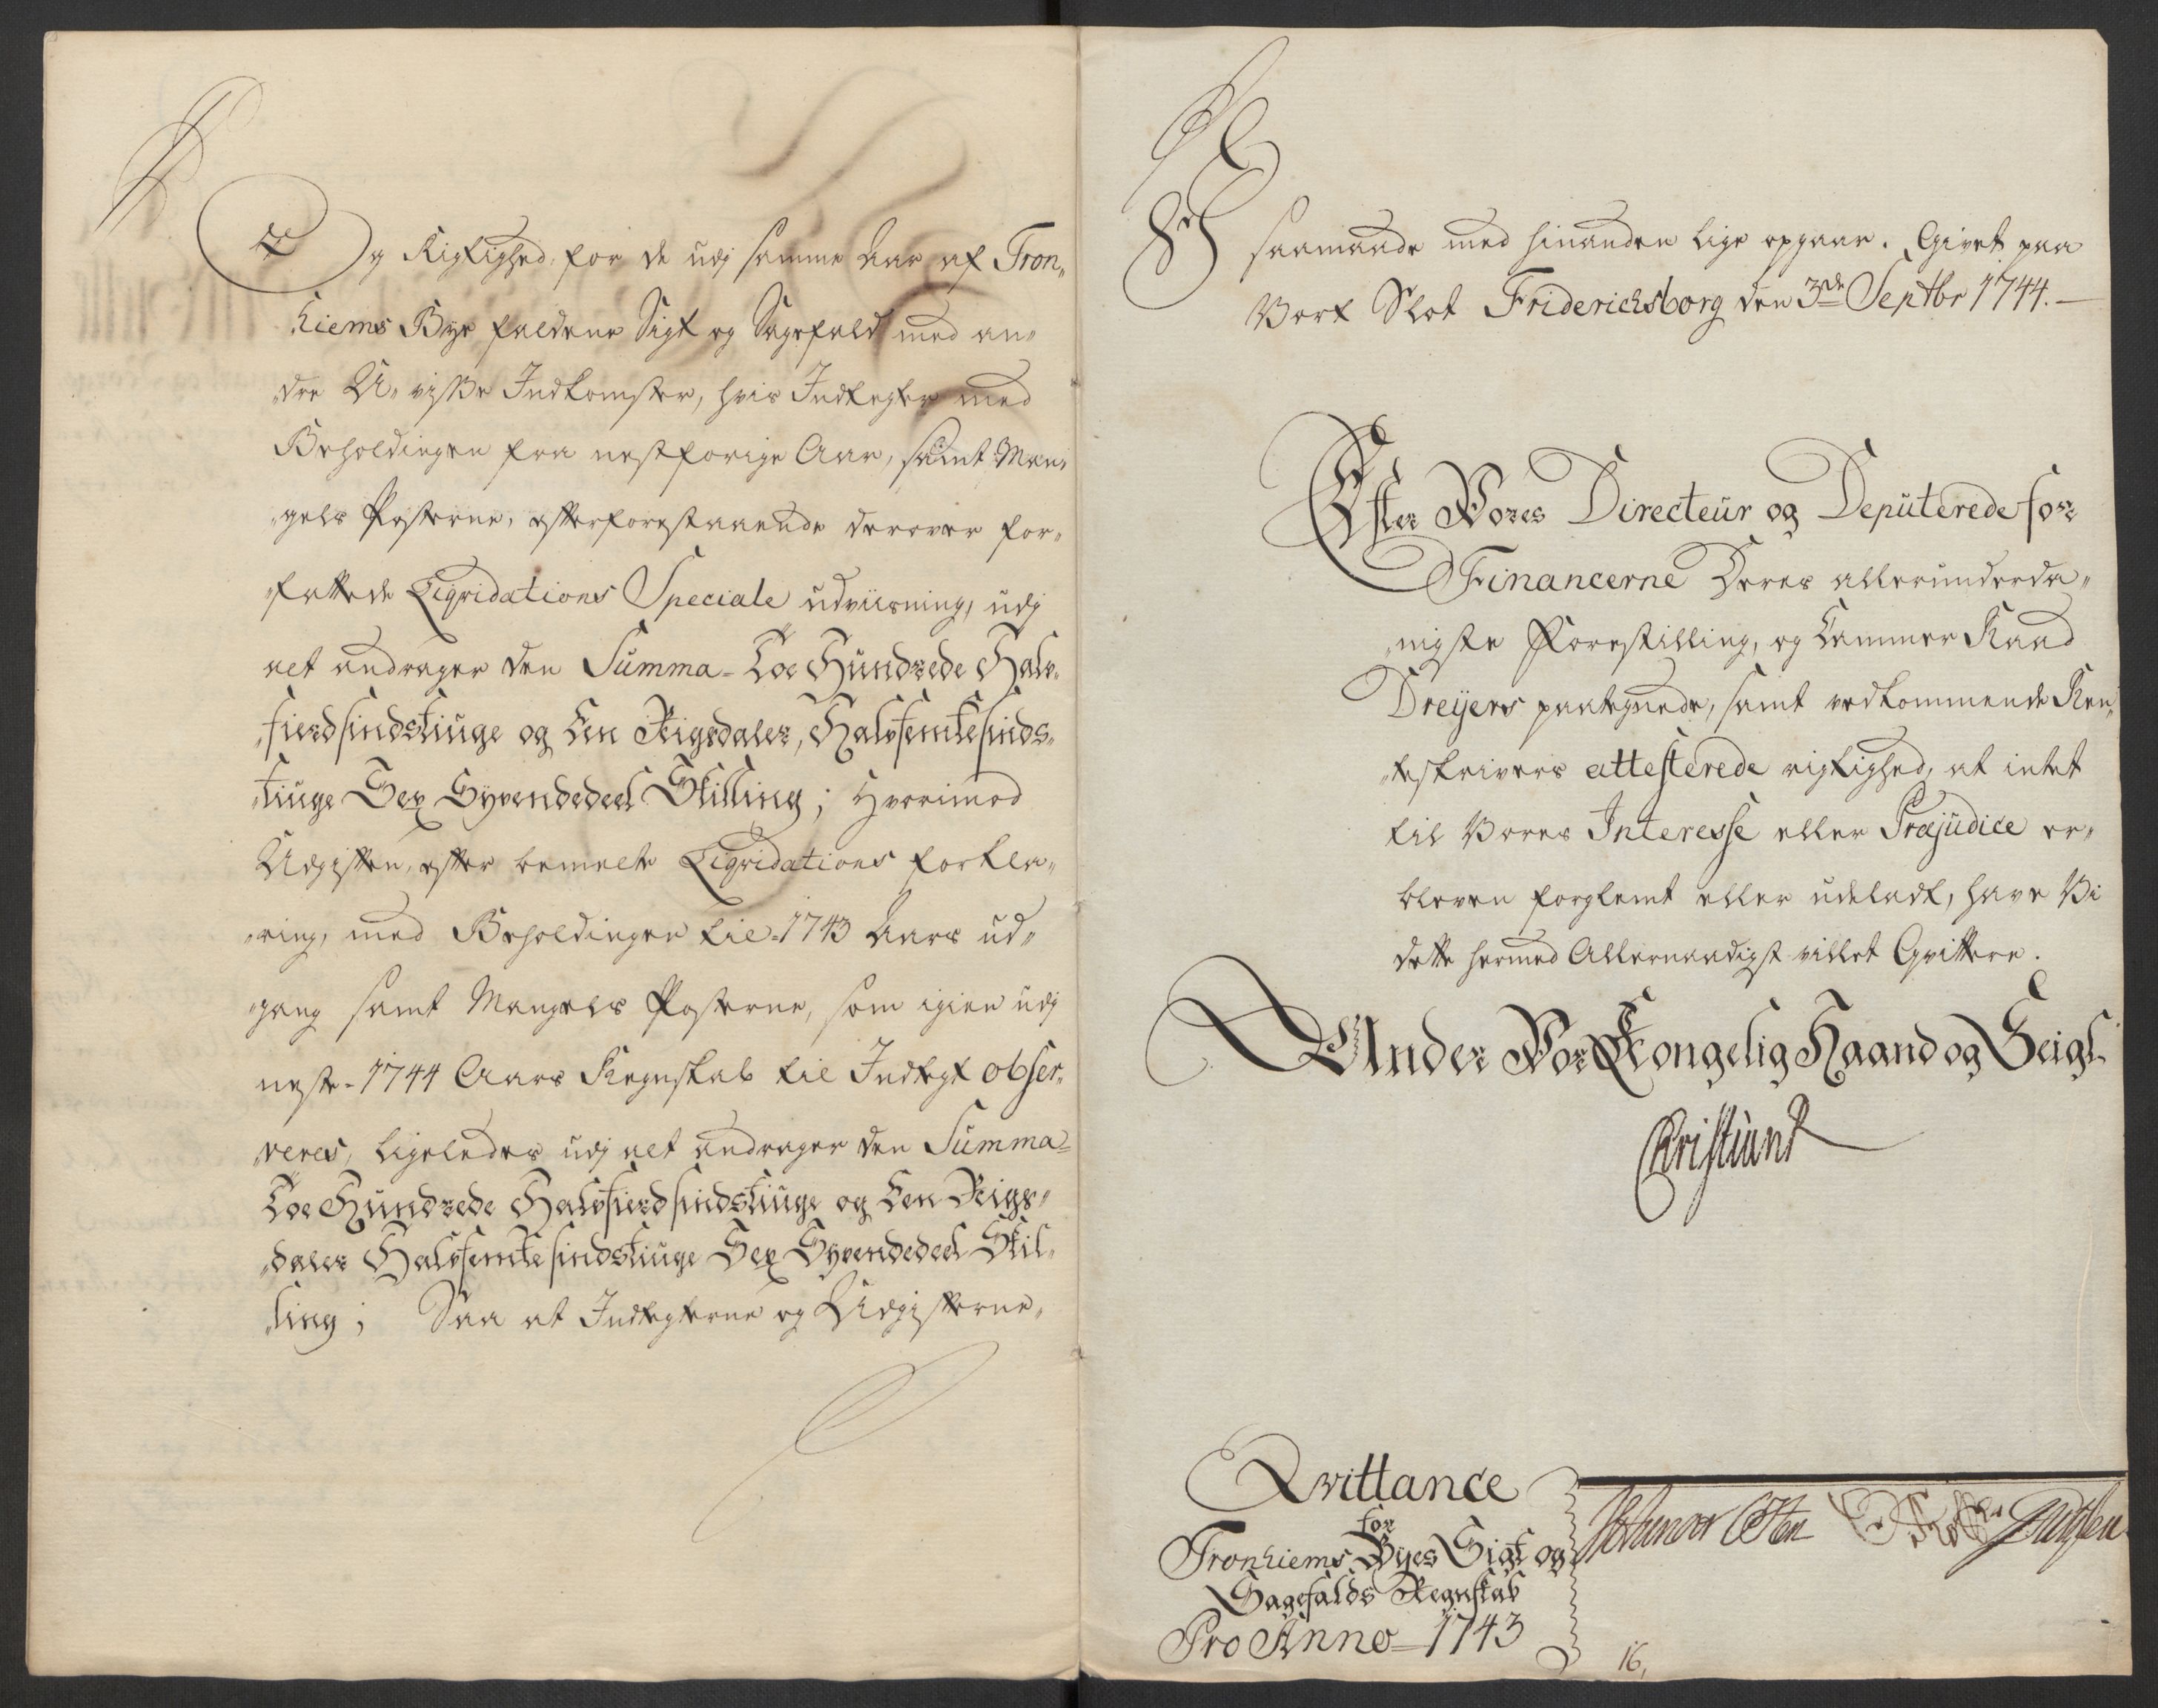 Og Rigtighed, for de udj samme Aar af Tron„
„hiems Bye faldene Sigt og Sagefald med an„
„dre U„visse Indkomster, hvis Indtegter med
Beholdingen fra nestforige Aar, samt Man„
„gels Posterne, efterforestaaende derover for„
„fattede Liqvidations Speciale udviisning, udj
alt andrager den Summa= Toe Hundrede Halv„
„fierdsindstiuge og Een Rigsdaler, Halvfemtesinds„
„tiuge Sex Syvendedeel Skilling; Hvorimod
Udgiften, efter bemelte Liqvidations forkla„
„ring, med Beholdingen til=1743 Aars ud„
„gang samt Mangels Posterne, som igien udj
neste=1744 Aars Regnskab til Indtegt obser„
„veres, ligeledes udj alt andrager den Summa=
Toe Hundrede Halvfierdsindstiuge og Een Rigs„
„daler Halvfemtesindstiuge Sex Syvendedeel Skil„
„ling; Saa at Indtegterne og Udgifterne„
saamaade med hinanden lige opgaar. Givet paa
Vort Slot Friderichsborg den 3de Septbr 1744.
Efter Vores Directeur og Deputerede for
Financerne Deres allerunderda„
„nigste Forestilling, og Cammer Raad
Dreyers paategnede, samt vedkommende Ren„
„teskrivers attesterede rigtighed, at intet
til Vores Interesse eller Præjudice er„
bleven forglemt eller udeladt, have Vi
dette hermed Allernaadigst villet Qvittere.
Under Vor Kongelig Haand og Seigl.
Christian R
Qvittance
for
Tronhiems Byes Sigt og
Sagefalds Regnskab
Pro Anno=1743
16,